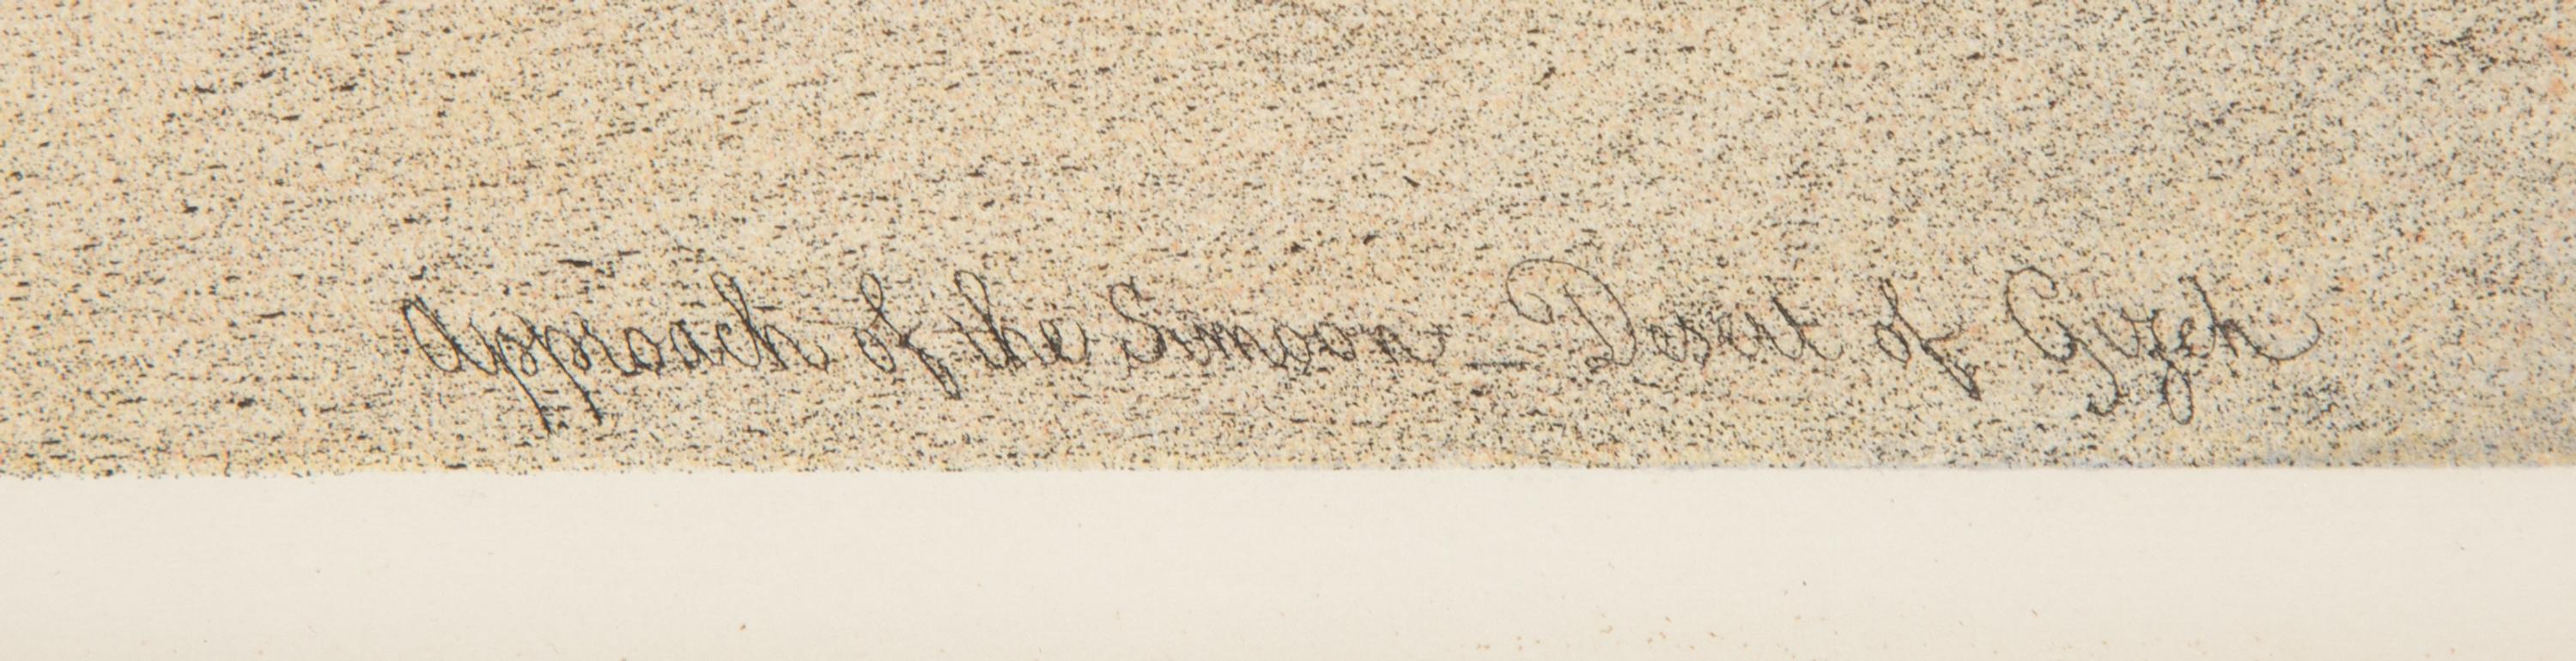 Approach of the Simoon _ Desert of Gizeh